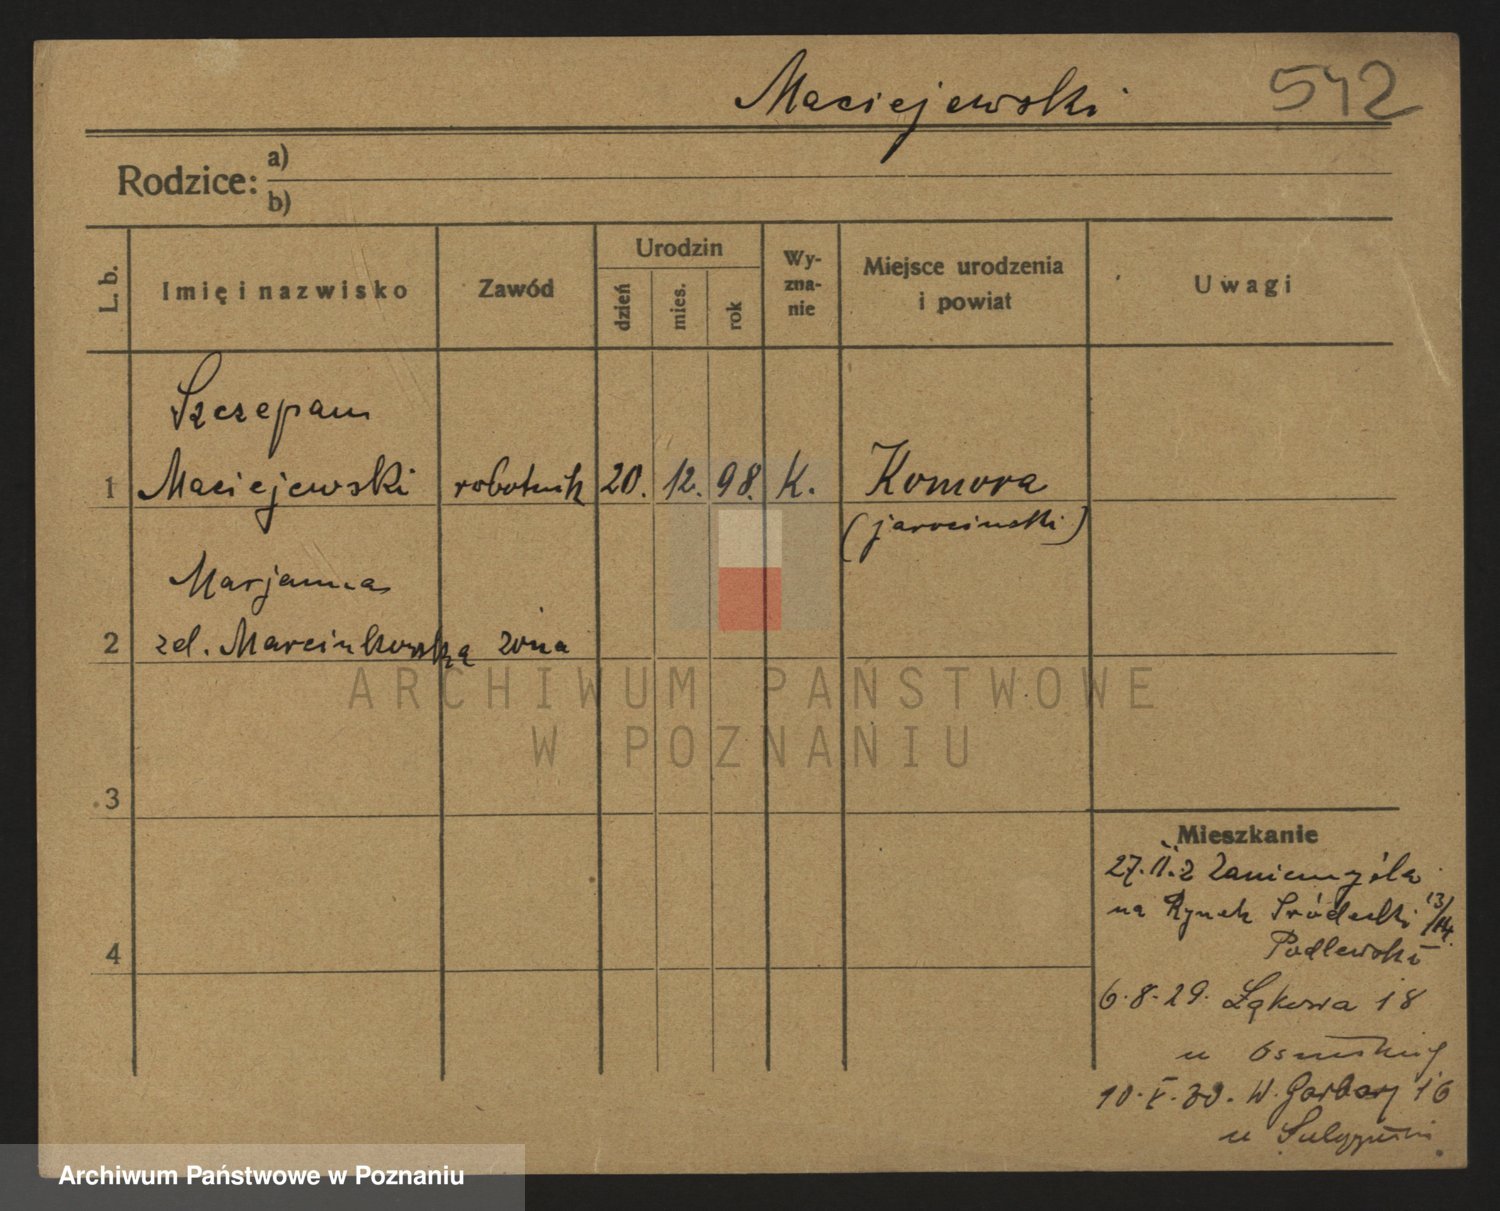 Maciejewski 542
Rodzice: a)
b)
L. b.
Imię i nazwisko
Zawód
Urodzin
dzień
mies.
rok
Wy-
zna-
nie
Miejsce urodzenia
i powiat
Uwagi
Szczepan
1 Maciejewski robotnik 20. 12. 98. K. Komora
(jarociński)
Marjanna
2 zd. Marcinkowska żona
ARCHIWUM PAŃSTWOWE
W POZNANIU
3
4
Mieszkanie
27.II.2 Zaniemyśla
na Rynek Śródecki 13/14.
Podlewski
6.8.29. Łąkowa 18
u
10.X.30. W. Garbary 16
u
Archiwum Państwowe w Poznaniu